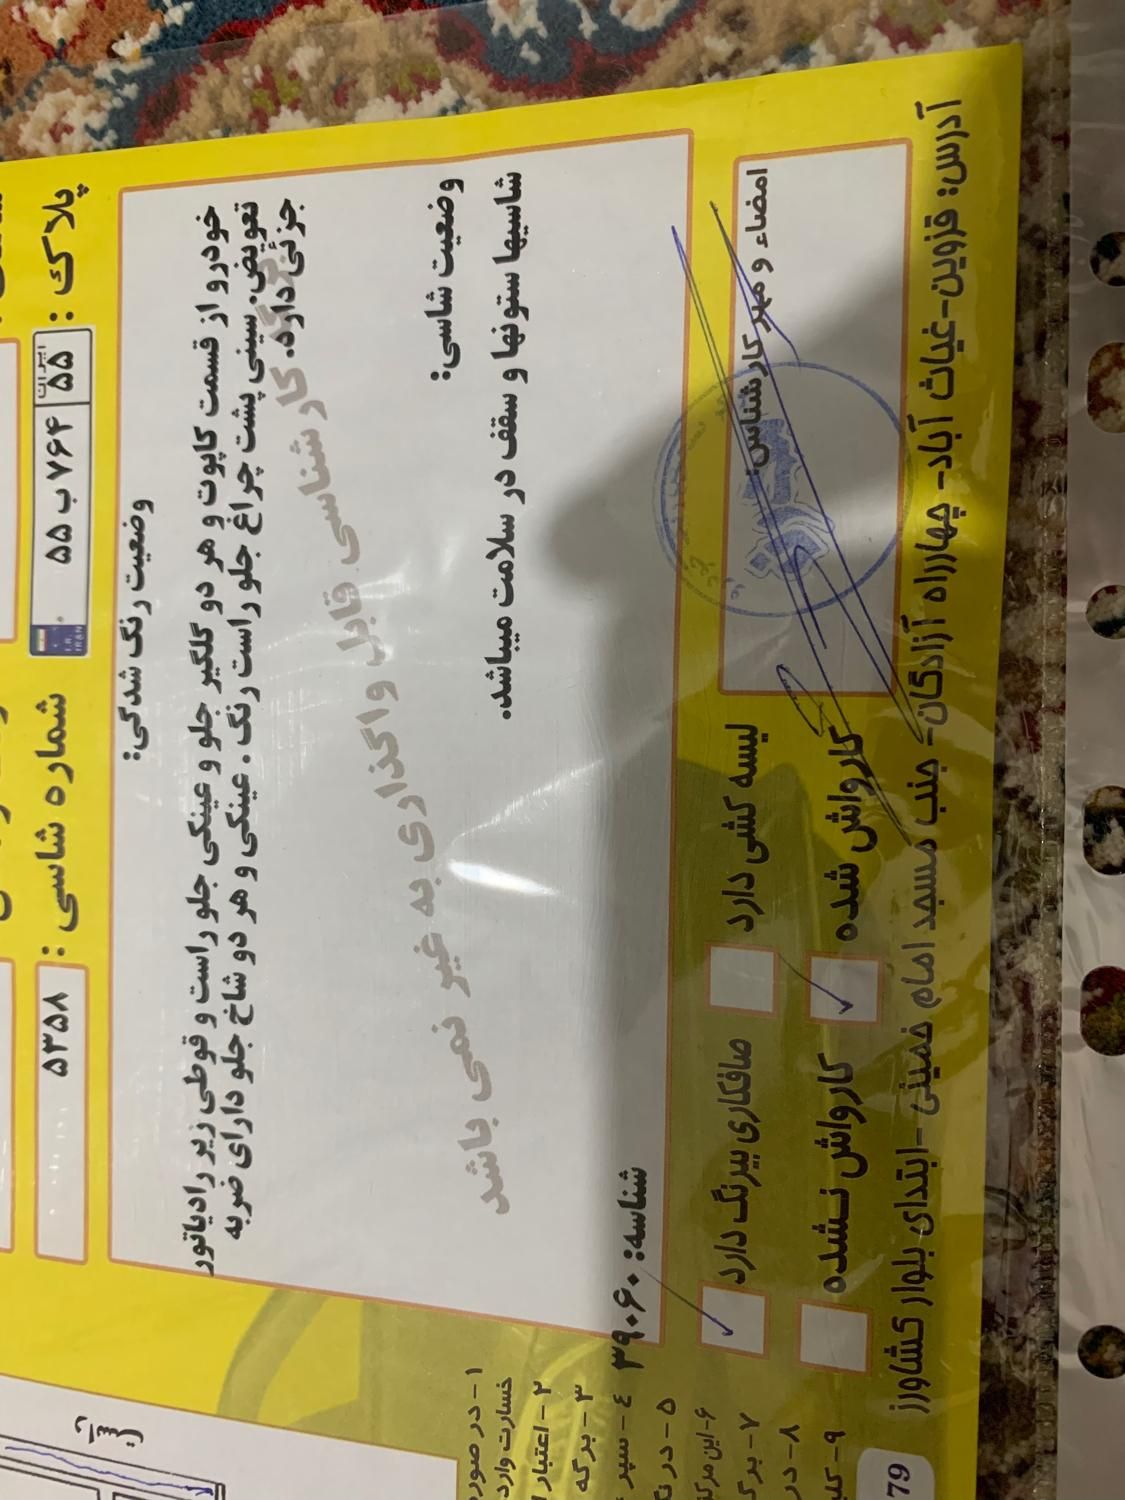 پلاک :
ایران
۵۵
۷۶۴ ب ۵۵
I.R.
IRAN
شماره شاسی :
۵۳۵۸
وضعیت رنگ شدگی:
خودرو از قسمت کاپوت و هر دو گلگیر جلو و عینکی جلو راست و قوطی زیر رادیاتور
تعویض. سینی پشت چراغ جلو راست رنگ . عینکی و هر دو شاخ جلو دارای ضربه
جزئی دارد.
کارشناسی قابل واگذاری به غیر نمی باشد
وضعیت شاسی:
شاسیها ستونها و سقف در سلامت میباشد.
شناسه: ۳۹۰۶۰
امضاء و مهر کارشناس:
لیسه کشی دارد
صافکاری بیرنگ دارد
کارواش شده
کارواش نـشده
آدرس: قزوین-غیاث آباد- چهارراه آزادگان- جنب مسجد امام خمینی -ابتدای بلوار کشاورز
۱- در صورت
خسارت وارد
۲- اعتبار
۳- برگه
٤- سپر
۵- در
۶- این مرکز
۷- برگ
۸- در
۹-
79